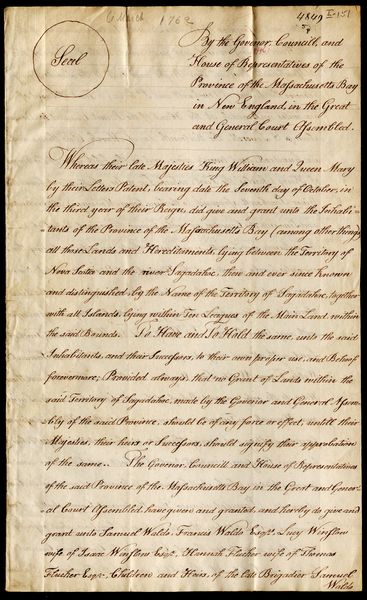 6 March 1762
4849
I-151
Seal
By the Governor, Councill, and
House of Representatives of the
Province of the Massachusetts Bay
in New England, in the Great
and General Court Assembled.
Whereas their late Majesties King William and Queen Mary
by their Letters Patent, bearing date the Seventh day of October, in
the third year of their Reign, did give and grant unto the Inhabi-
tants of the Province of the Massachusetts Bay (among other things)
all those Lands and Hereditaments, lying between the Territory of
Nova Scotia and the river Sagadahoc, then and ever since Known
and distinguished by the Name of the Territory of Sagadahoc, together
with all Islands, lying within Ten Leagues of the Main Land, within
the said Bounds. To Have and To Hold the same, unto the said
Inhabitants, and their Successors, to their own proper use, and Behoof
forevermore; Provided always, that no Grant of Lands within the
said Territory of Sagadahoc, made by the Governor and General Assem-
bly of the said Province, should be of any force or effect, untill their
Majesties, their heirs or Successors, should signify their approbation
of the same. The Governor, Councill and House of Representatives
of the said Province of the Massachusetts Bay in the Great and Gener-
al Court Assembled, have given and granted, and hereby do give and
grant unto Samuel Waldo, Francis Waldo Esqrs, Lucy Winslow
wife of Isaac Winslow Esqr, Hannah Flucker wife of Thomas
Flucker Esqr, Children and Heirs, of the late Brigadier Samuel
Waldo